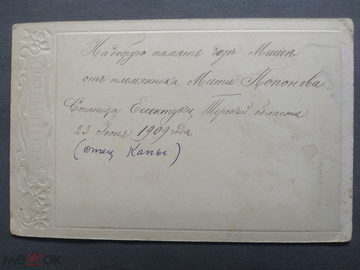 На добрую память дяде Мише
от племянника Мити Попонова
Станица Ессентуки, Терской области
23 Июня 1909 года
(отец Капы)
мешок